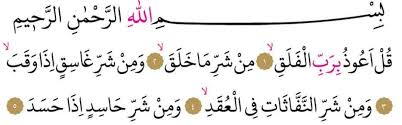 بِسْمِ اللهِ الرَّحْمٰنِ الرَّحِيمِ
قُلْ اَعُوذُ بِرَبِّ الْفَلَقِۙ ﴿١﴾ مِنْ شَرِّ مَا خَلَقَۙ ﴿٢﴾ وَمِنْ شَرِّ غَاسِقٍ اِذَا وَقَبَۙ
﴿٣﴾ وَمِنْ شَرِّ النَّفَّاثَاتِ فِى الْعُقَدِۙ ﴿٤﴾ وَمِنْ شَرِّ حَاسِدٍ اِذَا حَسَدَ ﴿٥﴾